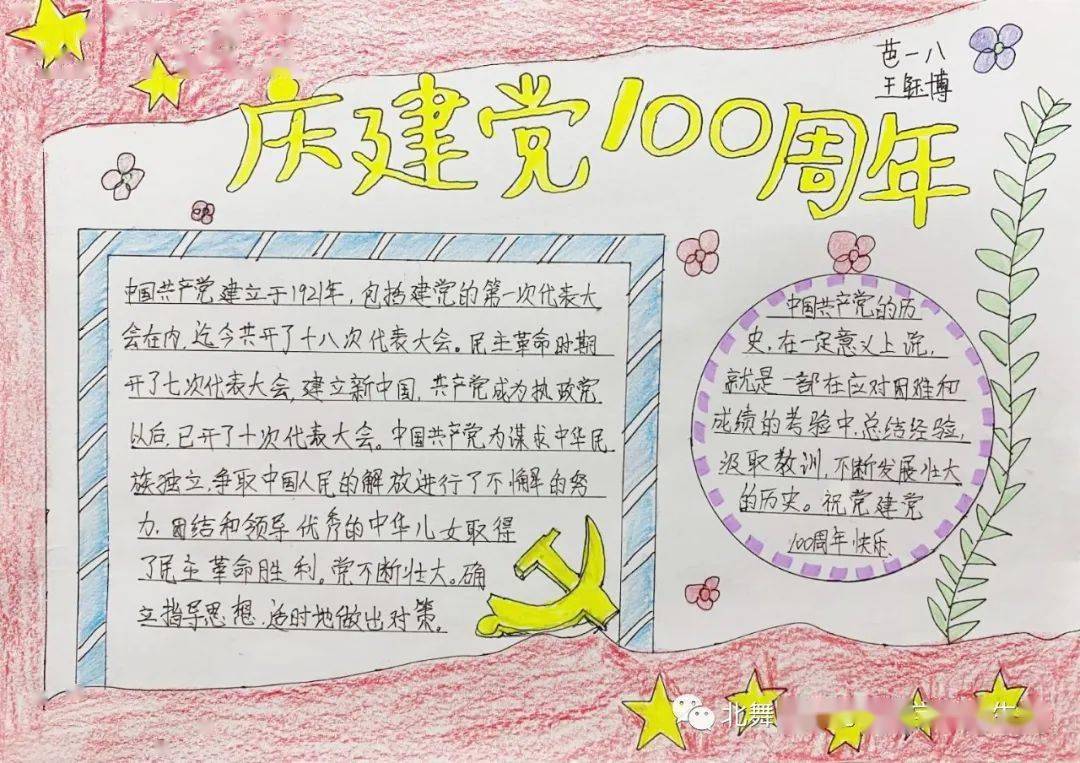 芭一八
王钰博
庆建党100周年
中国共产党建立于1921年，包括建党的第一次代表大
会在内，迄今共开了十八次代表大会。民主革命时期
开了七次代表大会，建立新中国，共产党成为执政党
以后，已开了十次代表大会。中国共产党为谋求中华民
族独立，争取中国人民的解放进行了不懈的努
力，团结和领导优秀的中华儿女取得
了民主革命胜利。党不断壮大。确
立指导思想，适时地做出对策。
中国共产党的历
史，在一定意义上说，
就是一部在应对困难和
成绩的考验中，总结经验，
汲取教训，不断发展壮大
的历史。祝党建党
100周年快乐
北舞